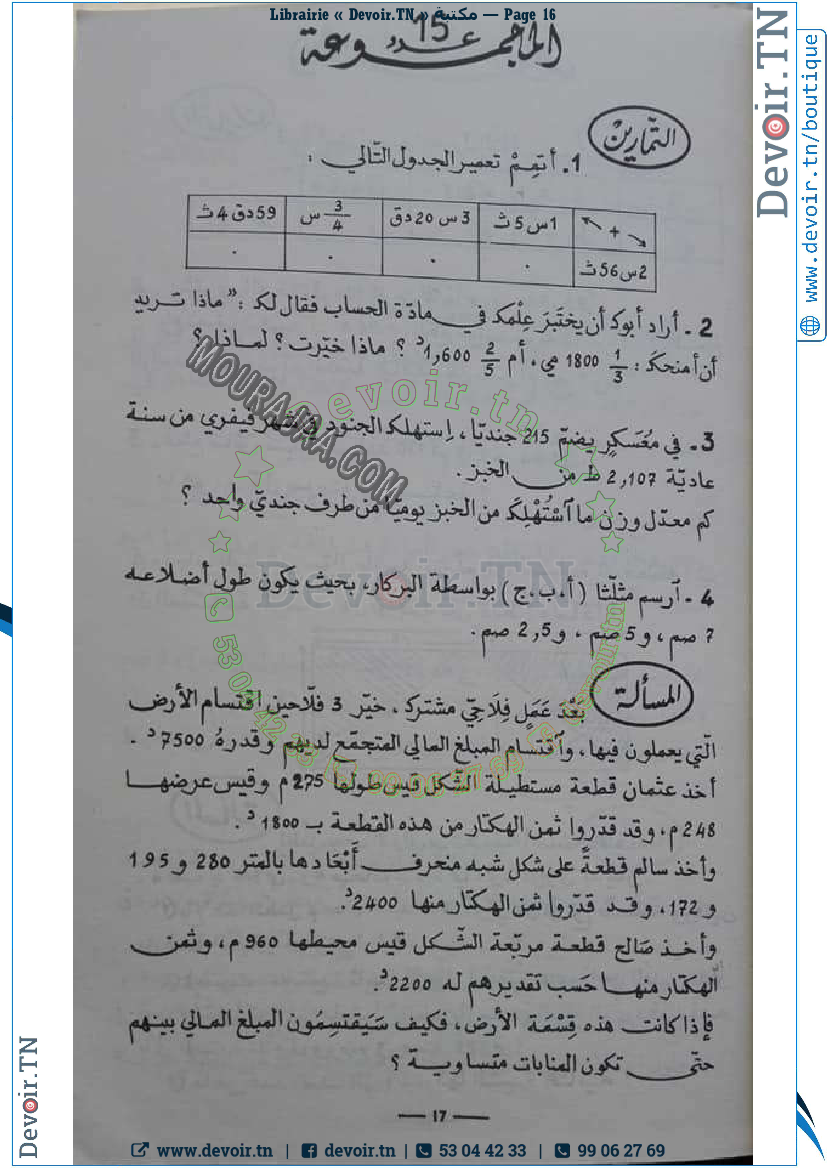 Librairie « Devoir.TN » مكتبة — Page 16
المجموعة عدد 15
التمارين
1. أتمم تعمير الجدول التالي :
↖ + ↘ | 1س 5ث | 3س 20دق | 3/4 س | 59دق 4ث
2س 56ث | . | . | . | .
2 - أراد أبوك أن يختبر علمك في مادة الحساب فقال لك : " ماذا تريد
أن أمنحك : 1/3 1800 مي، أم 2/5 1,600د ؟ ماذا خيّرت ؟ لماذا ؟
3 - في معسكر يضمّ 215 جنديّا، إستهلك الجنود في شهر فيفري من سنة
عاديّة 2,107 ط من الخبز .
كم معدّل وزن ما ٱسْتُهْلِكَ من الخبز يوميّا من طرف جنديّ واحد ؟
4 - أرسم مثلّثا (أ، ب، ج) بواسطة البركار، بحيث يكون طول أضلاعه
7 صم، و5 صم، و2,5 صم.
المسألة
بَعْدَ عَمَلٍ فِلَاحِيّ مشترك، خيّر 3 فلّاحين اقتسام الأرض
الّتي يعملون فيها، وٱقتسام المبلغ المالي المتجمّع لديهم وقدرهُ 7500د.
أخذ عثمان قطعة مستطيلة الشّكل قيس طولها 275م وقيس عرضها
248م، وقد قدّروا ثمن الهكتار من هذه القطعة بـ 1800د.
وأخذ سالم قطعةً على شكل شبه منحرف أَبْعَادها بالمتر 280 و195
و172، وقد قدّروا ثمن الهكتار منها 2400د.
وأخذ صَالح قطعة مربّعة الشّكل قيس محيطها 960م، وثمن
الهكتار منها حَسب تقديرهم له 2200د.
فإذا كانت هذه قِسْمَة الأرض، فكيف سَيَقتسِمُون المبلغ المالي بينهم
حتّى تكون المنابات متساوية ؟
— 17 —
MOURAJAA.COM
Devoir.tn
Devoir.TN
Devoir.TN
www.devoir.tn/boutique
Devoir.TN
www.devoir.tn | devoir.tn | 53 04 42 33 | 99 06 27 69